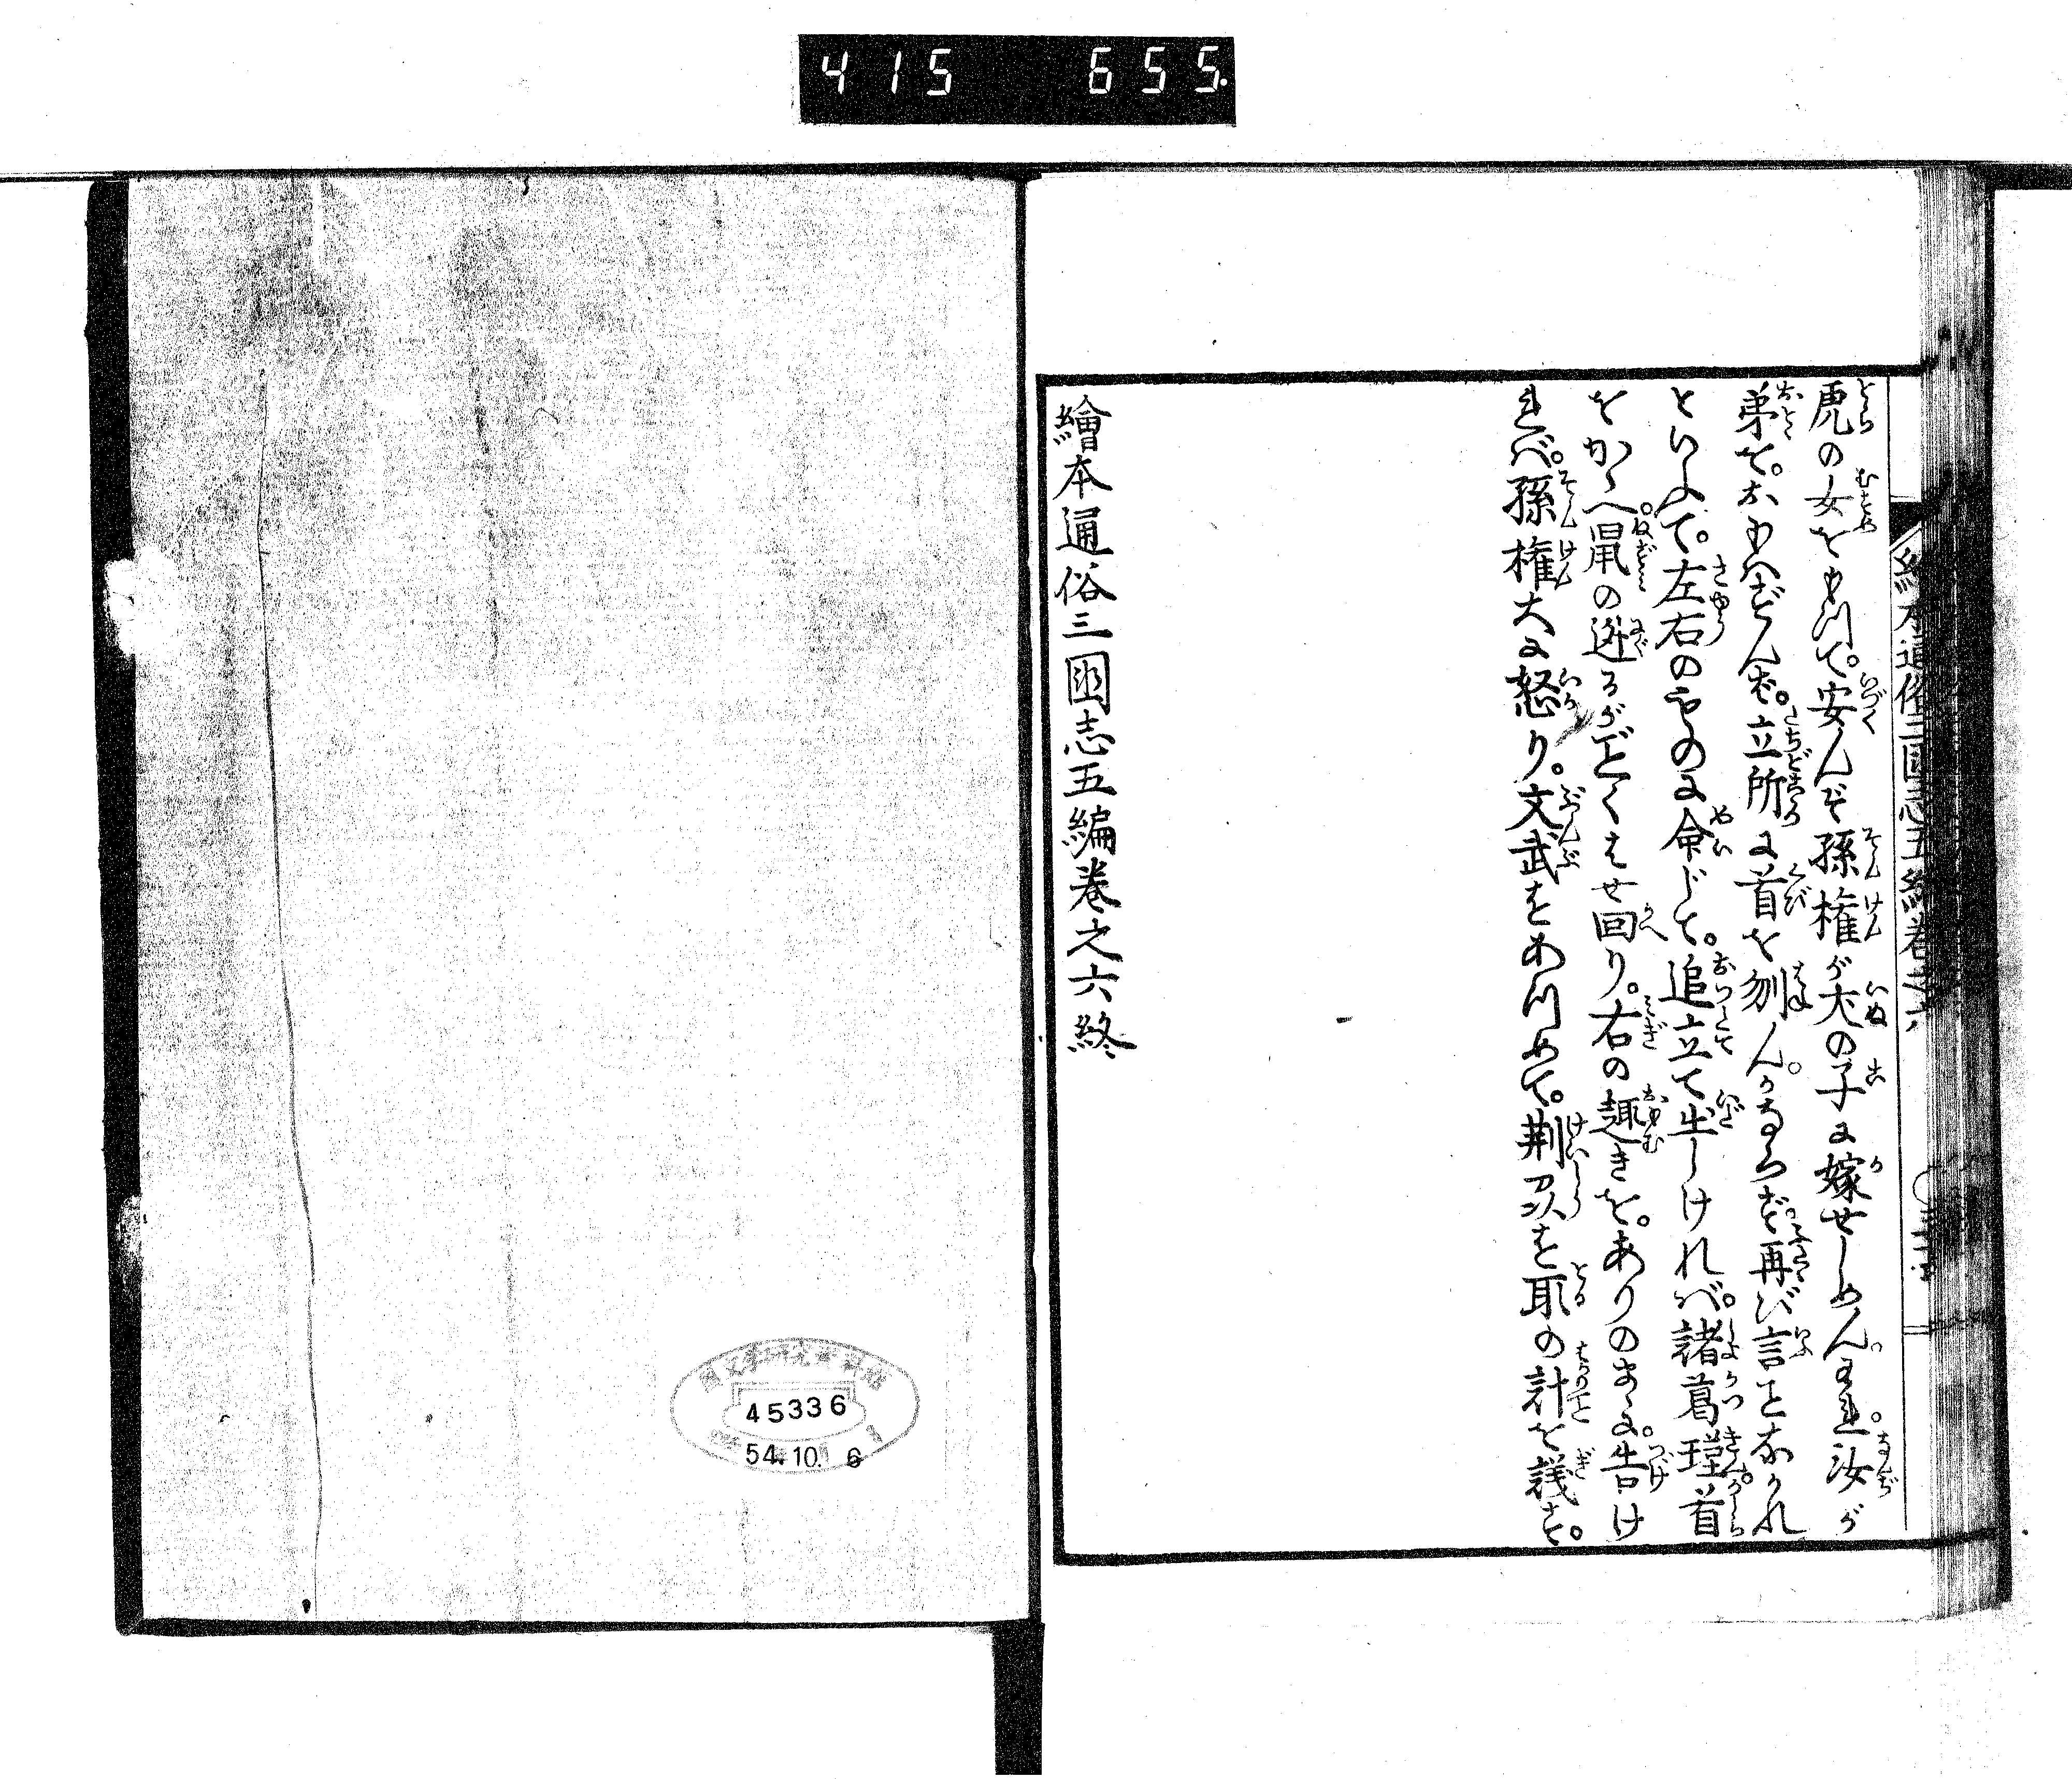 415 655.
繪本通俗三國志五編卷之六
虎の女をもつて。安んぞ孫権が犬の子に嫁せしめん。われ。汝が
弟を。おもはざんば。立所に首を刎ん。かならず。再び言ことなかれ
といふて。左右のものに命じて。追立て出しければ。諸葛瑾。首
をかゝへ。鼠の逃るがごとくはせ回り。右の趣きを。ありのまゝに。告け
れば。孫権大に怒り。文武をあつめて。荊刕を取の計を議す。
繪本通俗三國志五編卷之六終
45336
54.10.6